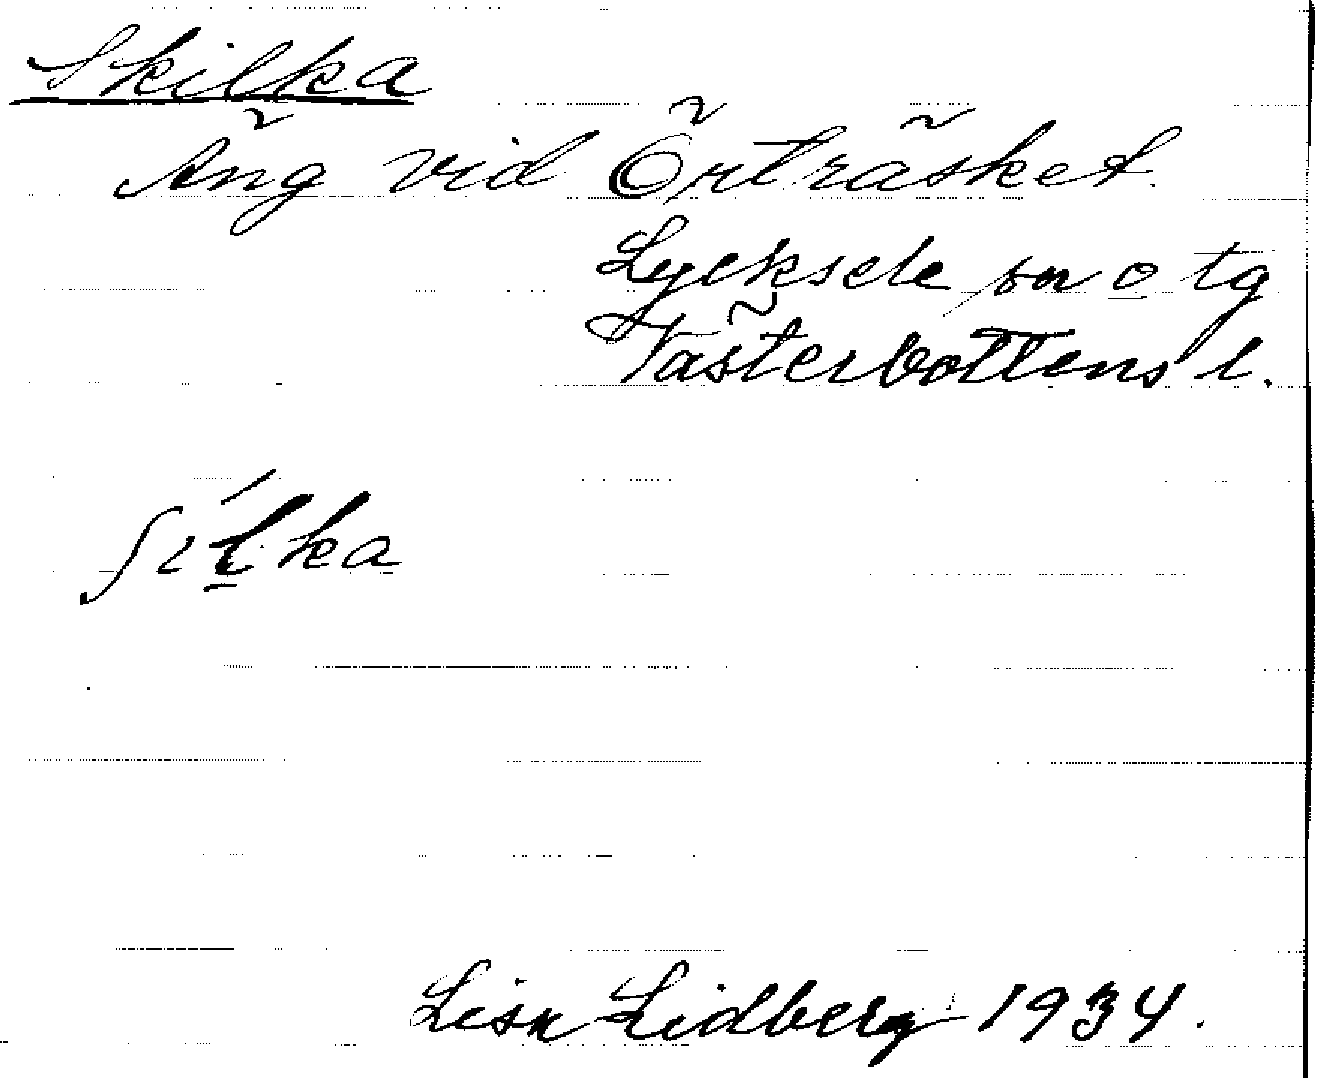 Skilka
Äng vid Örträsket.
Lycksele sn o tg
Västerbottens l.
ʃílka
Lisa Lidberg 1934.